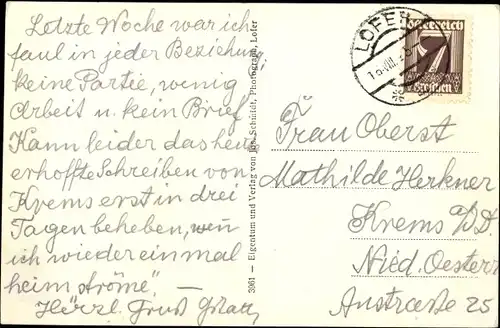 Letzte Woche war ich
faul in jeder Beziehung
keine Partie, wenig
Arbeit u. kein Brief
Kann leider das heu
erhoffte Schreiben von
Krems erst in drei
Tagen beheben, wen
ich wieder einmal
heim ströme" —
Herzl. Gruß
3061 — Eigentum und Verlag von Schütidt, Photograph, Lofer
LOFER
Österreich
7
Groschen
Frau Oberst
Mathilde Herkner
Krems a/D.
Nied. Oesterr
Austraße 25